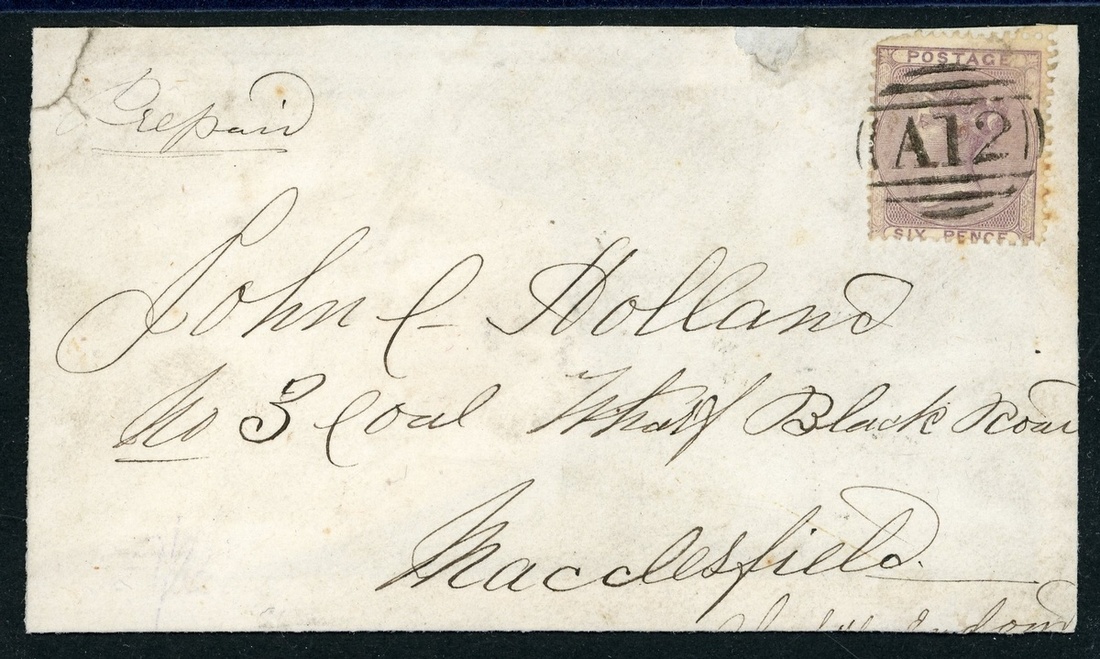 POSTAGE
A12
SIX PENCE
Prepaid
John C Holland
No 3 Coal Wharf Black Road
Macclesfield